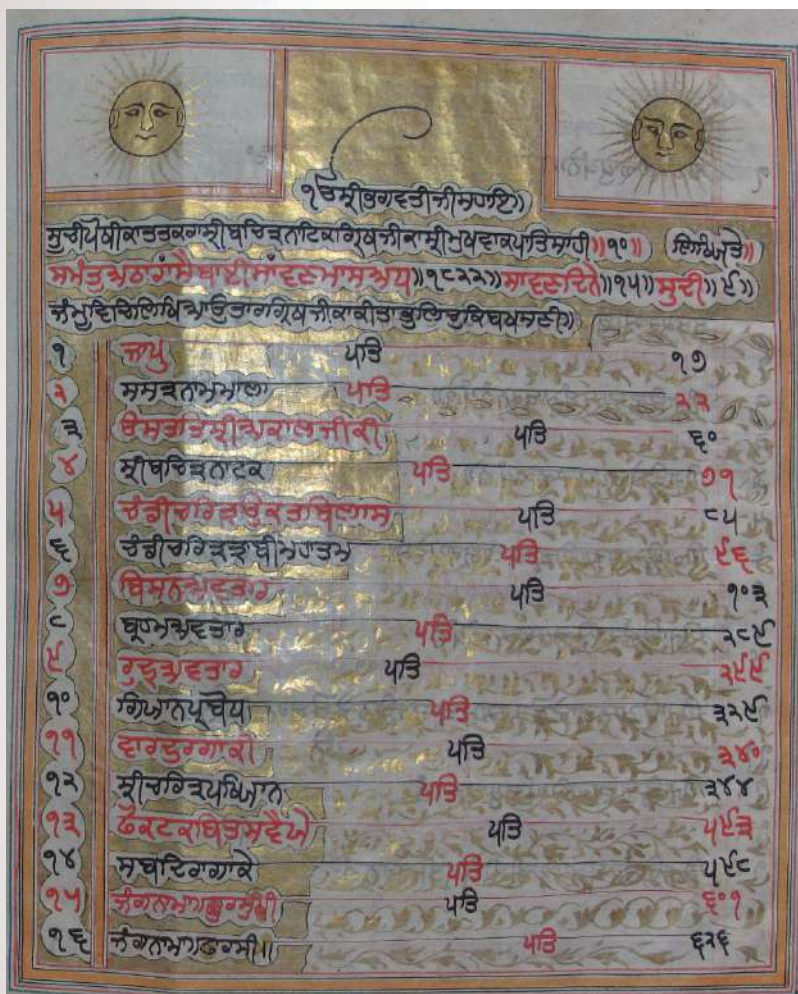 ੧ਓ ਸ੍ਰੀ ਭਗਵਤੀ ਜੀ ਸਹਾਇ॥
ਸੂਚੀ ਪੋਥੀ ਕਾ ਤਤਕਰਾ ਸ੍ਰੀ ਬਚਿਤ੍ਰ ਨਾਟਿਕ ਗ੍ਰਿੰਥ ਜੀ ਕਾ ਸ੍ਰੀ ਮੁਖਵਾਕ ਪਾਤਿਸਾਹੀ॥੧੦॥
ਸੰਮਤੁ ਅਠਾਰਾਂ ਸੈ ਬਾਈ ਸਾਂਵਣ ਮਾਸ ॥੧੮੨੨॥ ਸਾਵਣ ਦਿਨੇ॥੧੫॥ ਸੁਦੀ॥੯॥
ਜੰਮੂ ਵਿਚਿ ਲਿਖਿਆ
੧ ਜਾਪੁ ਪਤਿ ੧੭
੨ ਸਸਤ੍ਰ ਨਾਮ ਮਾਲਾ ਪਤਿ ੨੨
੩ ਉਸਤਤਿ ਸ੍ਰੀ ਅਕਾਲ ਜੀ ਕੀ ਪਤਿ ੬੦
੪ ਸ੍ਰੀ ਬਚਿਤ੍ਰ ਨਾਟਕ ਪਤਿ ੭੧
੫ ਚੰਡੀ ਚਰਿਤ੍ਰ ਉਕਤ ਬਿਲਾਸ ਪਤਿ ੮੫
੬ ਚੰਡੀ ਚਰਿਤ੍ਰ ਮਹਾਤਮ ਪਤਿ ੯੬
੭ ਬਿਸਨ ਅਵਤਾਰ ਪਤਿ ੧੦੩
੮ ਬ੍ਰਹਮ ਅਵਤਾਰ ਪਤਿ ੨੮੯
੯ ਰੁਦ੍ਰ ਅਵਤਾਰ ਪਤਿ ੨੯੯
੧੦ ਗਿਆਨ ਪ੍ਰਬੋਧ ਪਤਿ ੩੨੯
੧੧ ਵਾਰ ਦੁਰਗਾ ਕੀ ਪਤਿ ੩੪੦
੧੨ ਸ੍ਰੀ ਚਰਿਤ੍ਰ ਪਖਿਆਨ ਪਤਿ ੩੪੪
੧੩ ਫੋਕਟ ਕਬਿਤ ਸਵੈਯੇ ਪਤਿ ੫੯੩
੧੪ ਸਬਦਿ ਰਾਗਾ ਕੇ ਪਤਿ ੫੯੮
੧੫ ਜੰਗਨਾਮਾ ਗੁਰਮੁਖੀ ਪਤਿ ੬੦੧
੧੬ ਜੰਗਨਾਮਾ ਫਾਰਸੀ॥ ਪਤਿ ੬੨੬